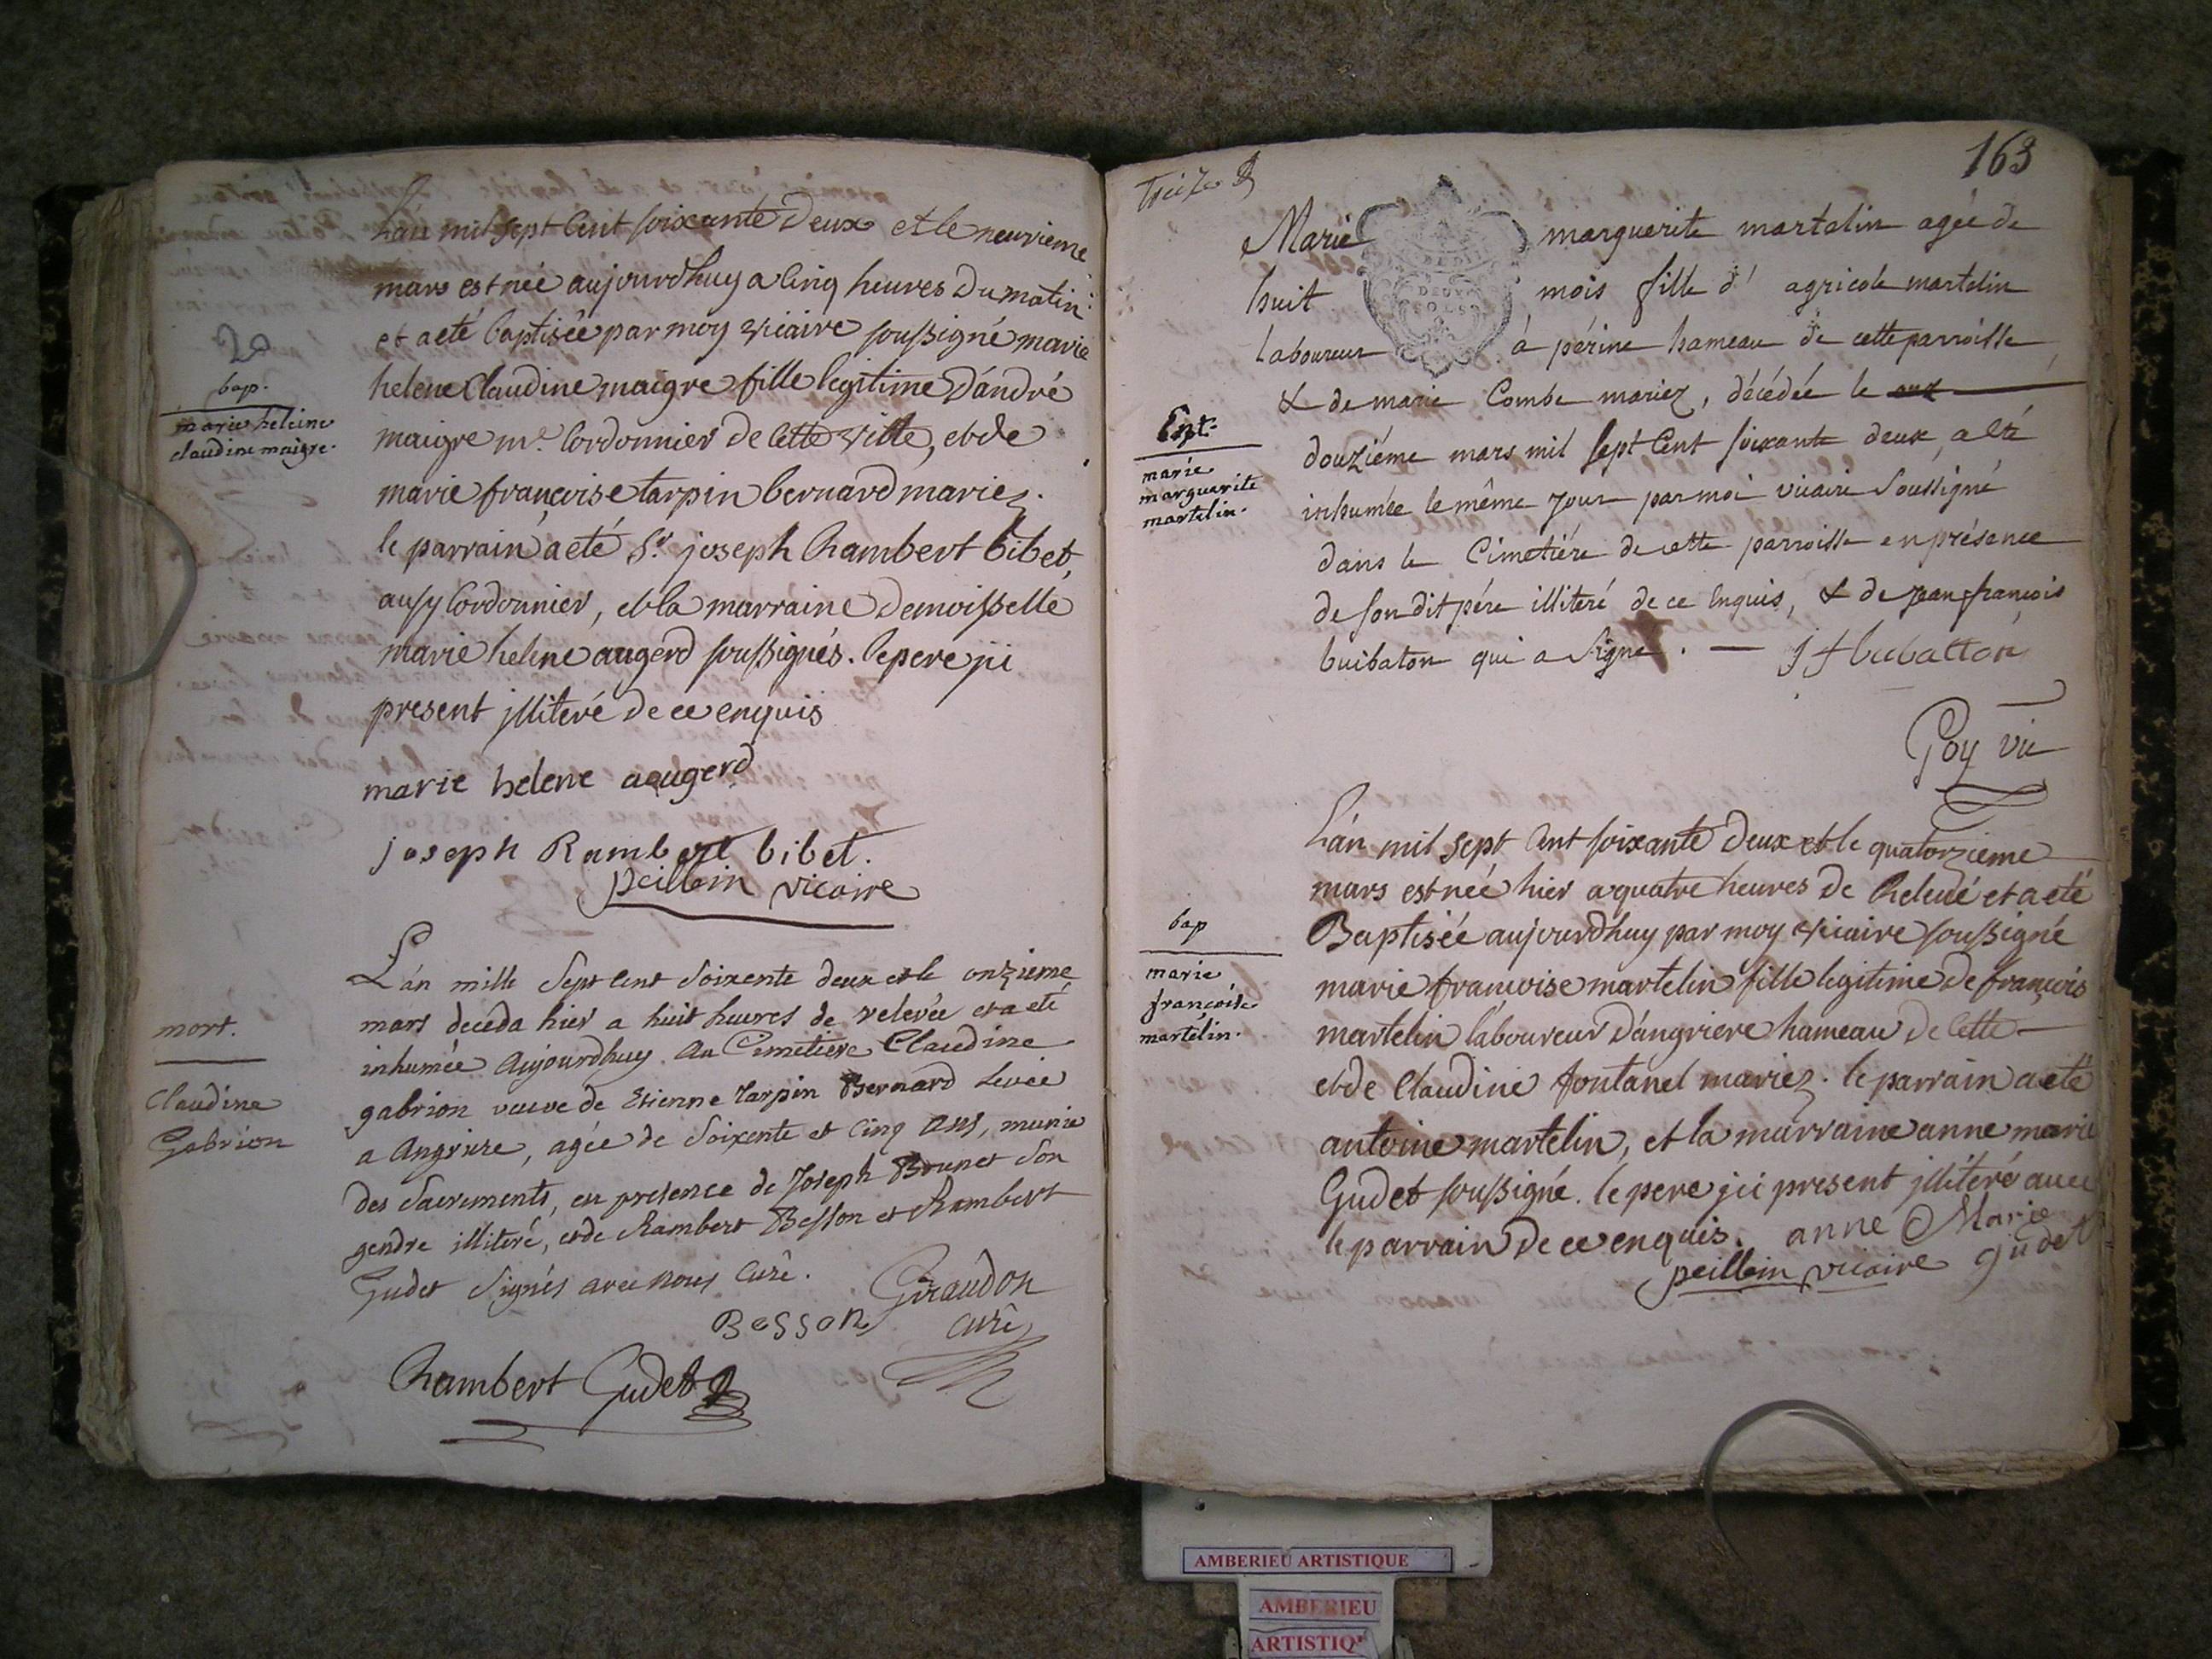 L'an mil sept cent soixante deux et le neuvieme
mars est née aujourdhuy a cinq heures du matin
et a eté baptisée par moy vicaire soussigné marie
helene Claudine maigre fille legitime d'andré
maigre me. Cordonnier de cette ville, et de
marie francoise tarpin bernard mariez.
le parrain a eté Sr. joseph Rambert bibet,
aussy Cordonnier, et la marraine demoisselle
marie helene augerd soussignés. le pere ici
present jlliteré de ce enquis
marie helene aaugerd
joseph Rambert bibet.
peillein vicaire
bap.
marie heleine
claudine maigre.
L'an mille Sept Cent Soixente deux et le onzieme
mars deceda hier a huit heures de relevée et a eté
inhumée Aujourdhuy Au Cimetiere Claudine
gabrion veuve de Etienne tarpin Bernard
a Angriere, agée de Soixente et Cinq Ans, munie
des Sacrements, en presence de Joseph Brunet Son
gendre illiteré, et de Rambert Besson et Rambert
Gudet Signés avec nous Curé.
Giraudon
curé
Besson
Rambert Gudet
mort.
Claudine
Gabrion
163
treize
Marie marguerite martelin agée de
huit mois fille d' agricole martelin
laboureur à périne hameau de cette parroisse
& de marie Combe mariez, décédée le
douziéme mars mil sept Cent soixante deux, a été
inhumée le même jour par moi vicaire Soussigné
dans le Cimetiére de cette parroisse en présence
de son dit pére illiteré de ce Enquis, & de jean françois
buibaton qui a Signé. — j f bubatton
Poy vic
DEUX
SOLS
Ent.
marie
marguerite
martelin.
L'an mil sept Cent soixante deux et le quatorzieme
mars est née hier a quatre heures de Relevé et a eté
Baptisée aujourdhuy par moy vicaire soussigné
marie francoise martelin fille legitime de françois
martelin laboureur d'angriere hameau de Cette
et de Claudine fontanel mariez. le parrain a eté
antoine martelin, et la marraine anne marie
Gudet soussigné. le pere jci present jllitéré avec
le parrain de ce enquis. anne Marie
gudet
peillein vicaire
bap
marie
françoise
martelin.
AMBERIEU ARTISTIQUE
AMBERIEU
ARTISTIQ